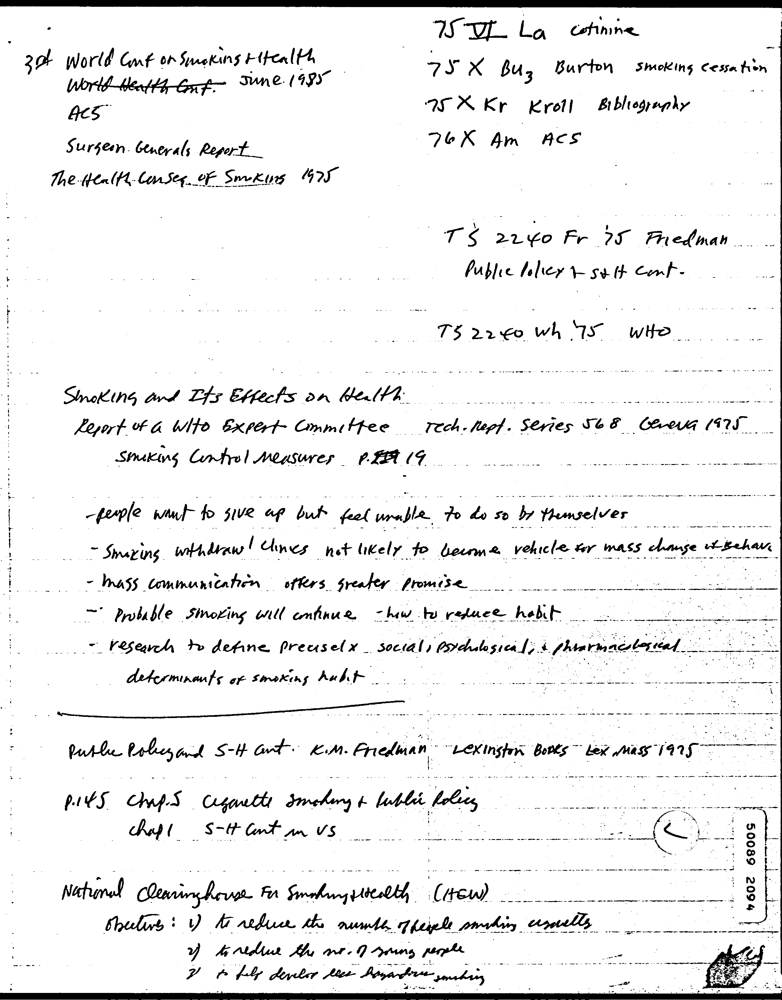 3rd World Conf on Smoking & Health
World Health Conf. June 1985
ACS
Surgeon Generals Report
The Health Conseq. of Smoking 1975
75 VI La cotinine
75 X Bu3 Burton smoking cessation
75 X Kr Kroll Bibliography
76 X Am ACS
TS 2240 Fr '75 Friedman
Public Policy & S & H Cont.
TS 2240 Wh '75 WHO
Smoking and Its Effects on Health
Report of a WHO Expert Committee Tech. Rept. Series 568 Geneva 1975
Smoking Control Measures P. 19
- people want to give up but feel unable to do so by themselves
- Smoking withdrawl clinics not likely to become vehicle for mass change of Behav
- mass communication offers greater promise
- Probable smoking will continue - how to reduce habit
- research to define precisely social, psychological, & pharmacological
determinants of smoking habit
Public Policy and S-H Cont. K.M. Friedman Lexington Books Lex Mass 1975
P.145 Chap.5 Cigarette Smoking & Public Policy
chap 1 S-H Cont in US
National Clearinghouse For Smoking & Health (HEW)
Objectives: 1) to reduce the number of people smoking cigarettes
2) to reduce the no. of young people
3) to help develop less hazardous smoking
50089 2094